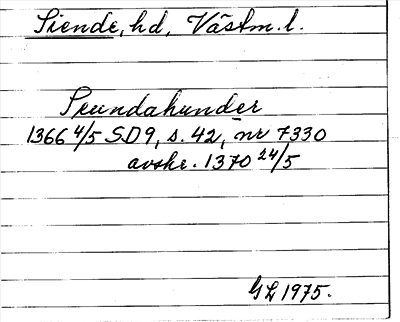 Siende, hd, Västm. l.
Seundahunder
1366 4/5 SD9, s. 42, nr 7330
avskr. 1370 24/5
GL 1975.